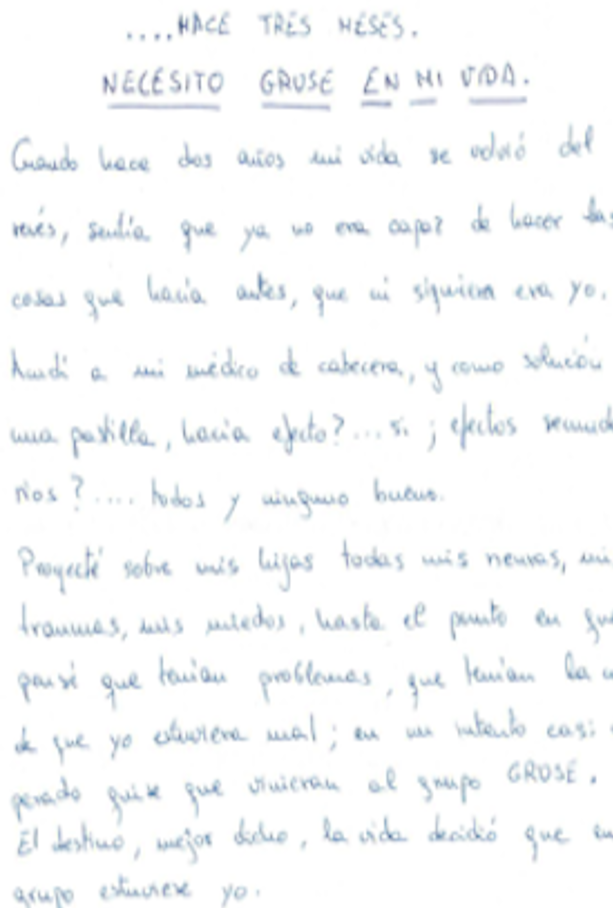 ....HACE TRES MESES.
NECESITO GROSE EN MI VIDA.
Cuando hace dos años mi vida se volvió del
revés, sentía que ya no era capaz de hacer las
cosas que hacía antes, que ni siquiera era yo.
Acudí a mi médico de cabecera, y como solución
una pastilla, hacía efecto?... si ; efectos secunda
rios ?.... todos y ninguno bueno.
Proyecté sobre mis hijas todas mis neuras, mi
traumas, mis miedos, hasta el punto en que
pensé que tenían problemas, que tenían la
de que yo estuviera mal; en un intento casi
perado quise que vinieran al grupo GROSE.
El destino, mejor dicho, la vida decidió que en
grupo estuviese yo.